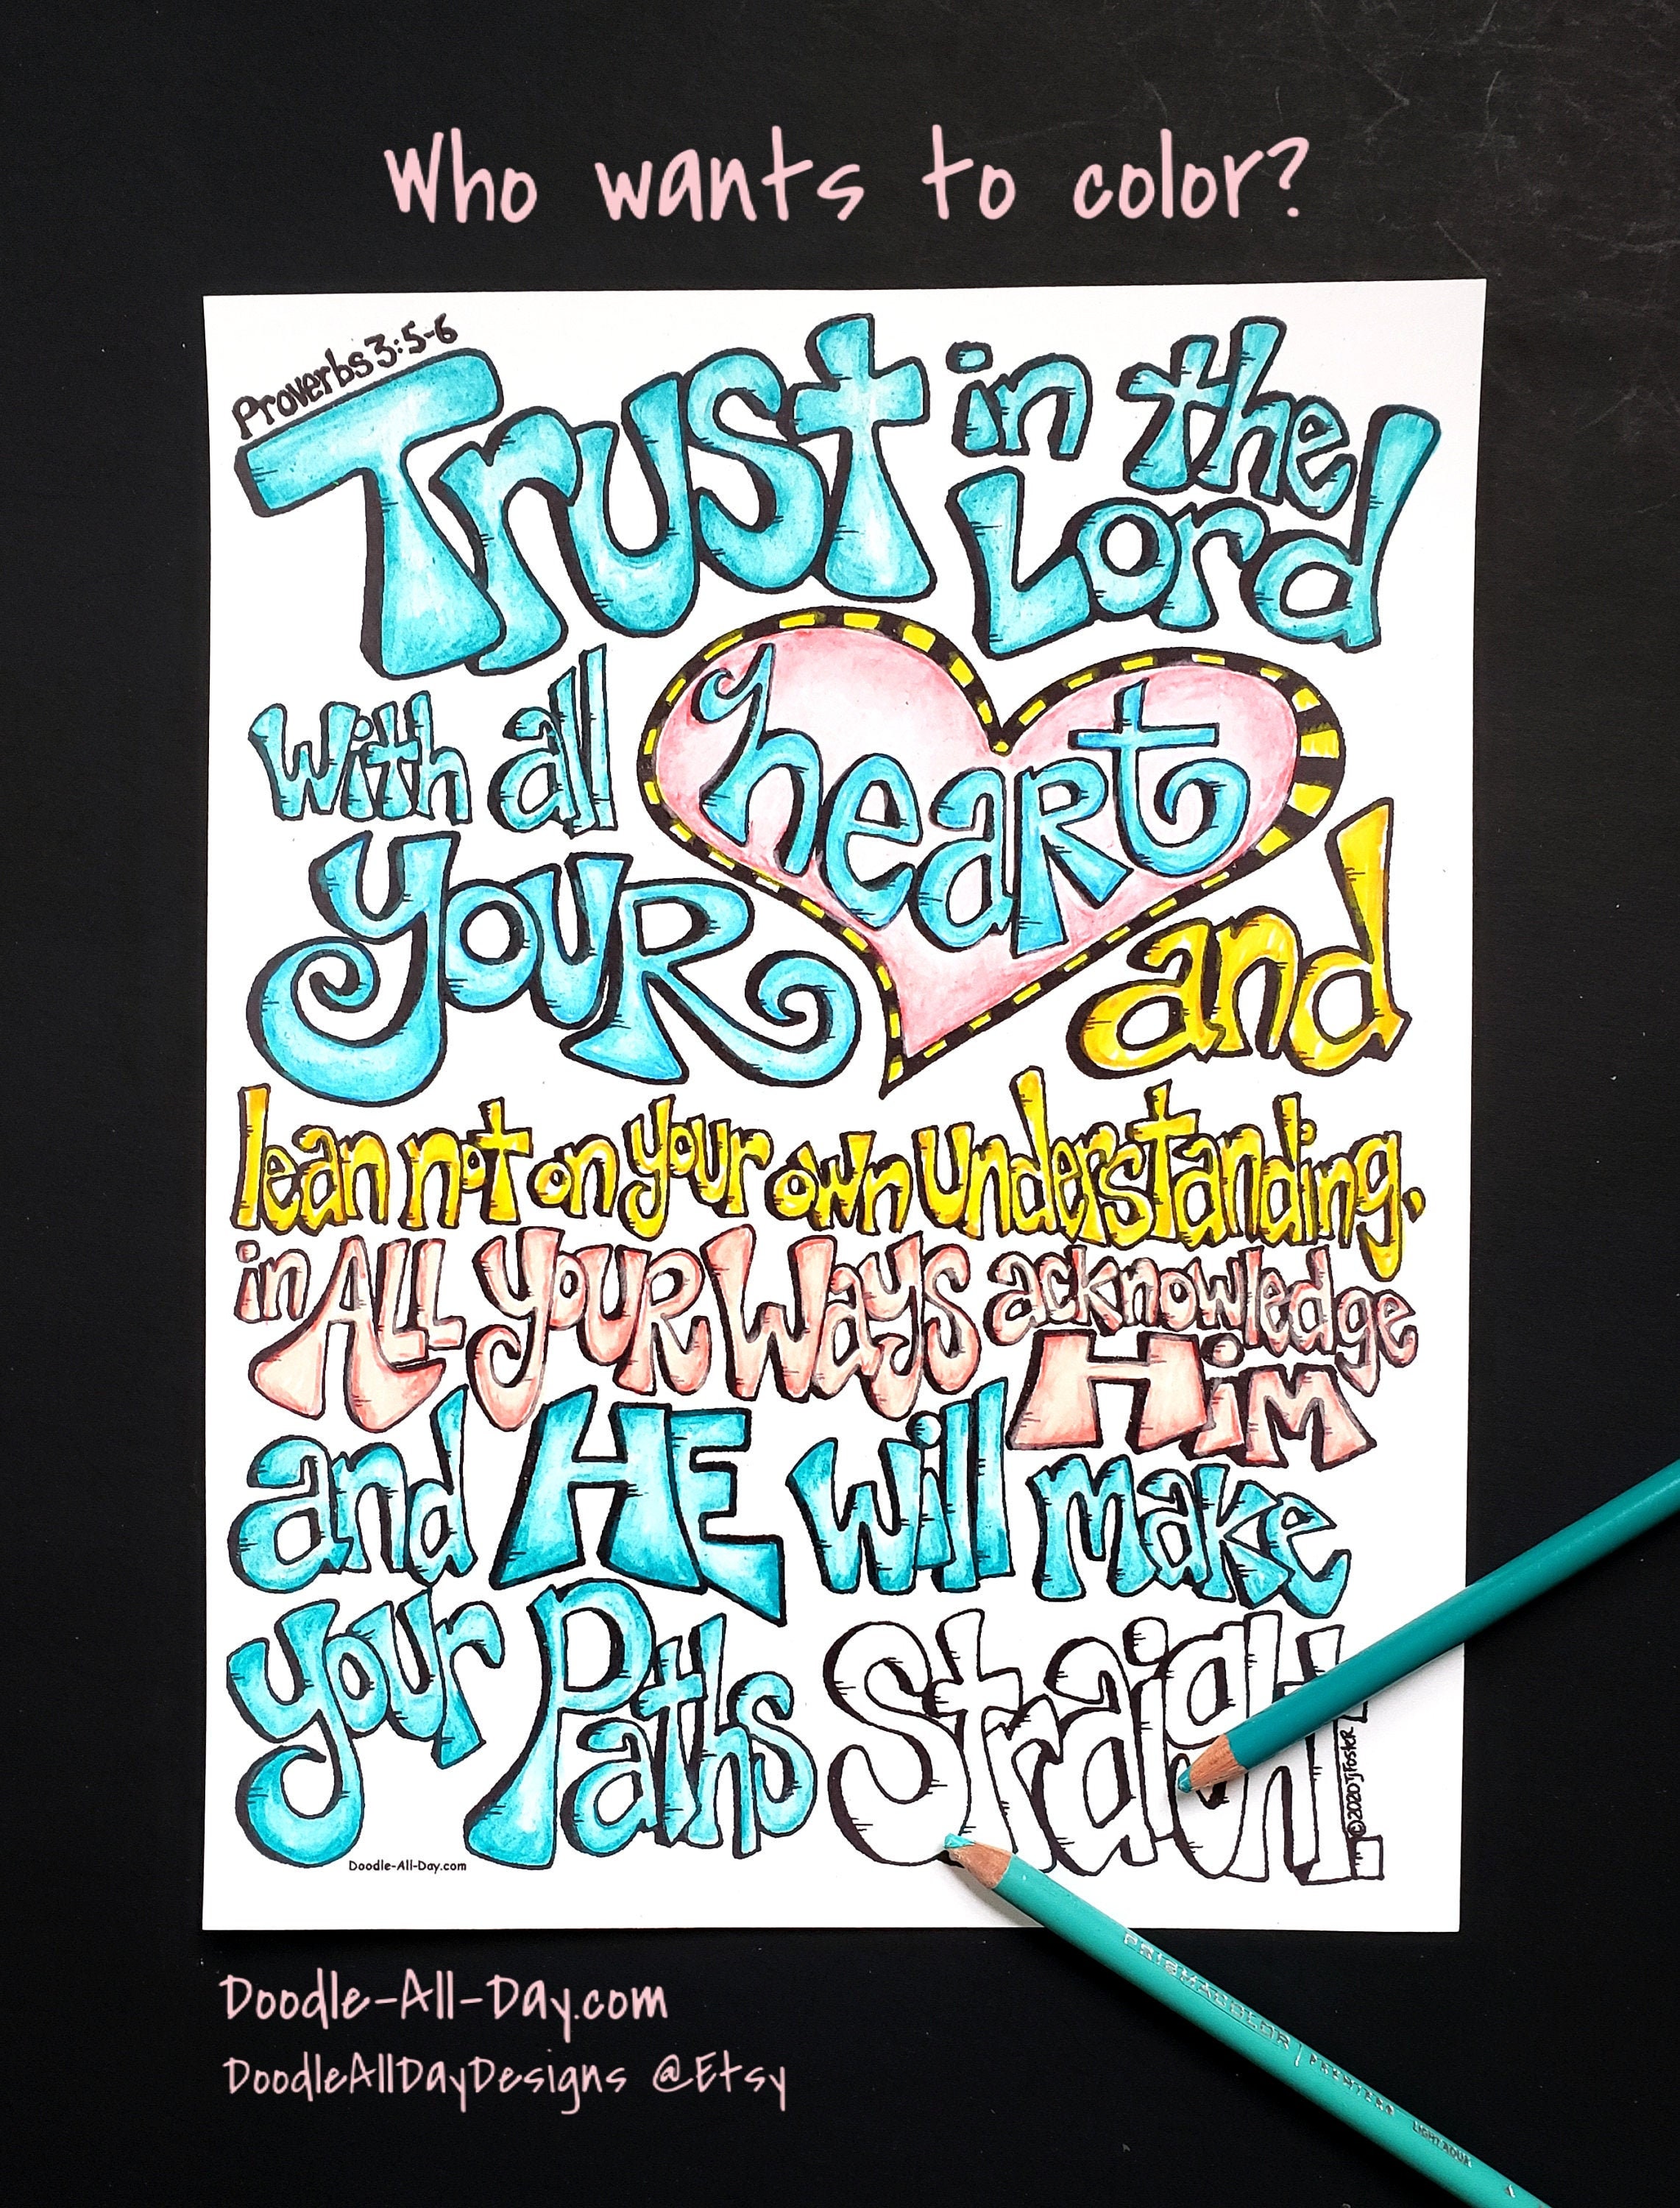 Who wants to color?
Proverbs 3:5-6
Trust in the
Lord
with all heart
your and
lean not on your own understanding.
in All your ways acknowledge
Him
and HE will make
your Paths Straight.
©2020 TJFoster
Doodle-All-Day.com
PRISMACOLOR | PREMIER LIGHT AQUA
Doodle-All-Day.com
DoodleAllDayDesigns @Etsy